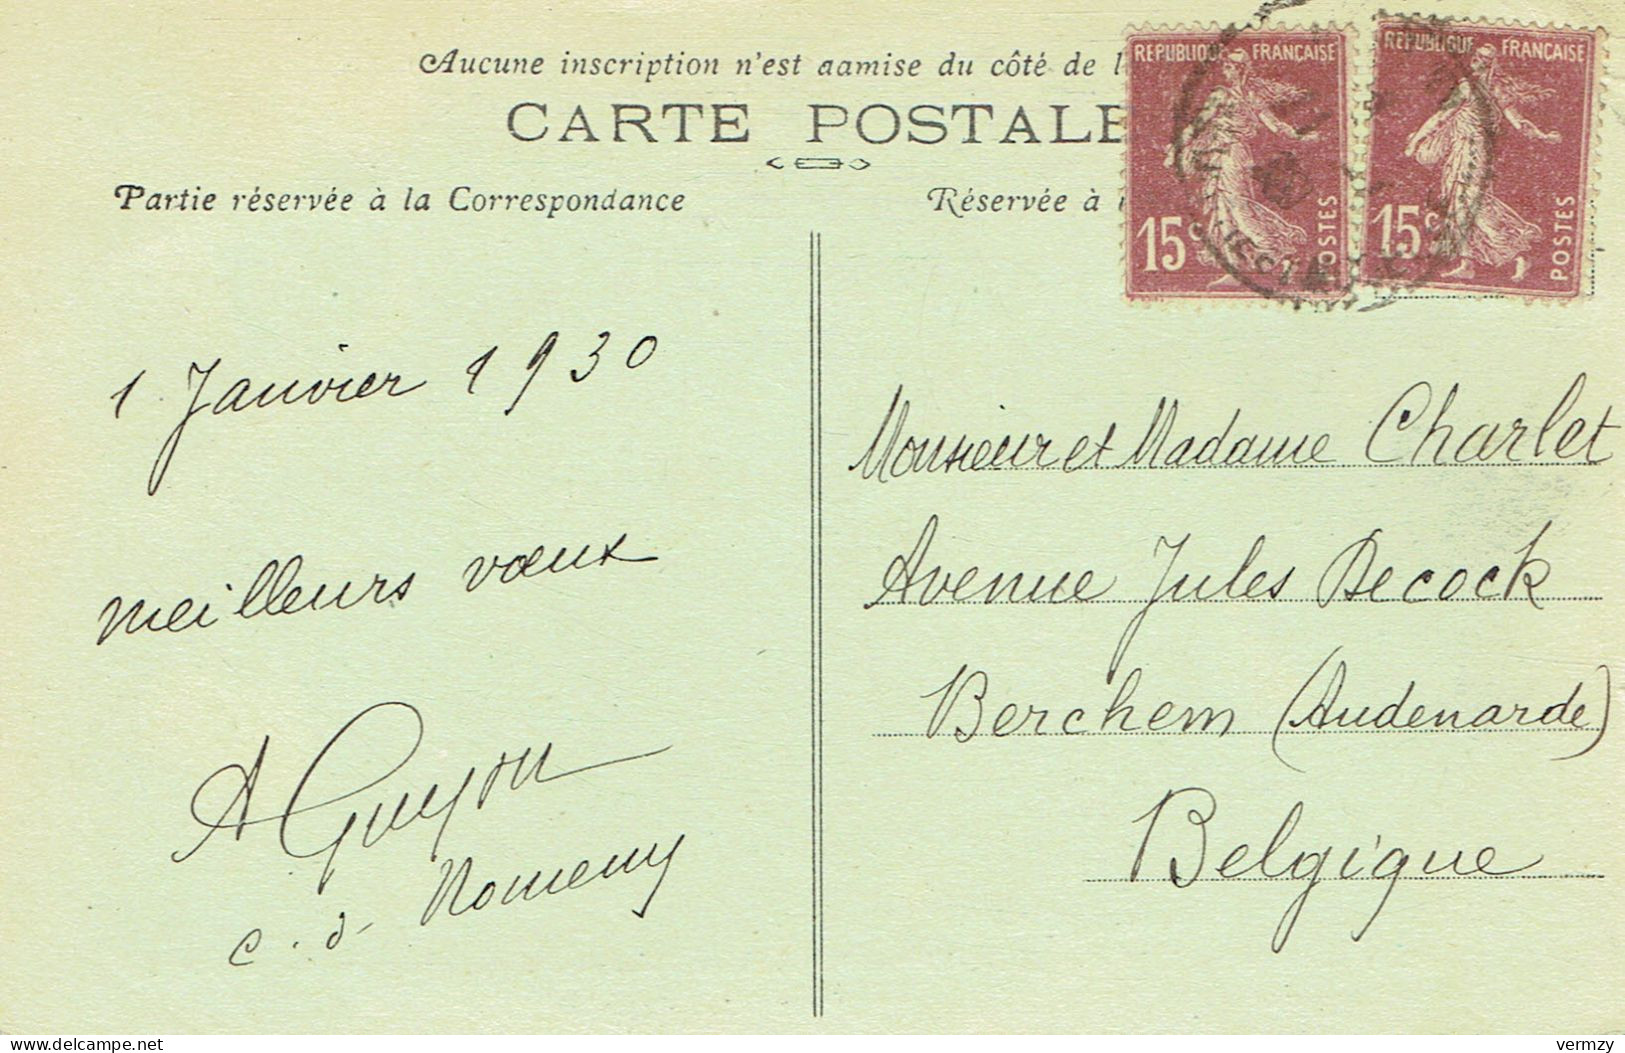 Aucune inscription n'est aamise du côté de l
CARTE POSTALE
Partie réservée à la Correspondance
Réservée à
REPUBLIQUE FRANÇAISE
15c POSTES
REPUBLIQUE FRANÇAISE
15c POSTES
1 Janvier 1930
meilleurs vœux
A Guyon
c. d. Nomeny
Monsieur et Madame Charlet
Avenue Jules Decock
Berchem (Audenarde)
Belgique
delcampe.net
vermzy